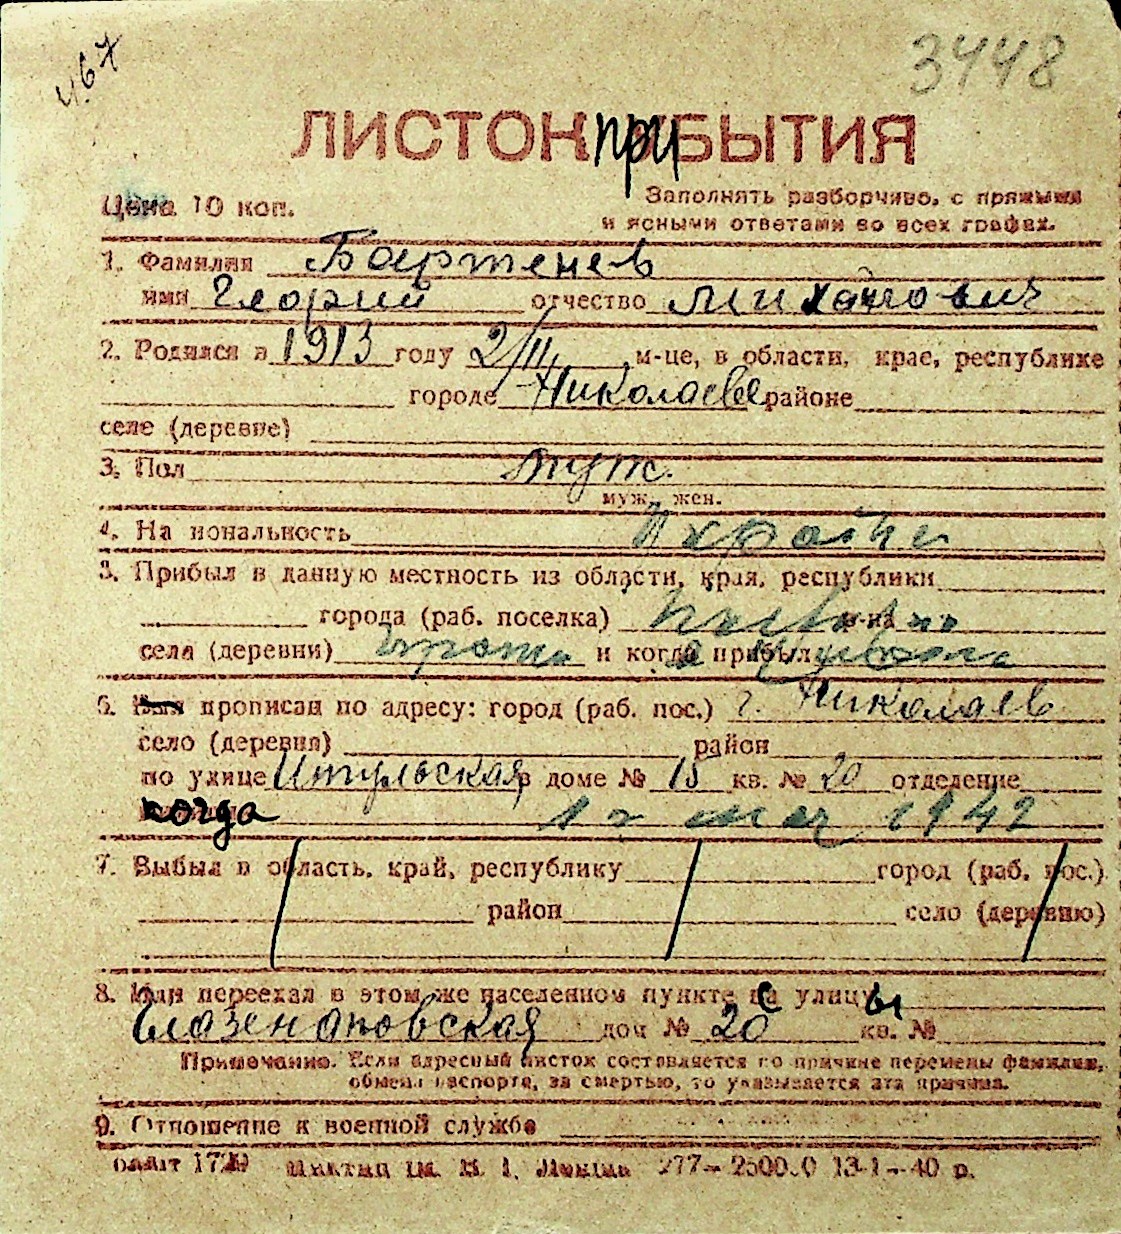 467
3448
ЛИСТОК ПРИБЫТИЯ
Цена 10 коп.
Заполнять разборчиво, с прямыми
и ясными ответами во всех графах.
1. Фамилия Бартенев
имя Георгий отчество Михайлович
2. Родился в 1913 году 2/II м-це, в области, крае, республике
городе Николаеве районе
селе (деревне)
3. Пол муж.
муж., жен.
4. Национальность Украин
5. Прибыл в данную местность из области, края, республики
города (раб. поселка) р-на
села (деревни) и когда прибыл
6. прописан по адресу: город (раб. пос.) г. Николаев
село (деревня) район
по улице Ингульская в доме № 15 кв. № 20 отделение
когда 12 мая 1942
7. Выбыл в область, край, республику город (раб. пос.)
район село (деревню)
8. Или переехал в этом же населенном пункте с улицы
Глазенаповская дом № 20 кв. №
Примечание. Если адресный листок составляется по причине перемены фамилии,
обмена паспорта, за смертью, то указывается эта причина.
9. Отношение к военной службе
277— 2500.0 13-1—40 р.